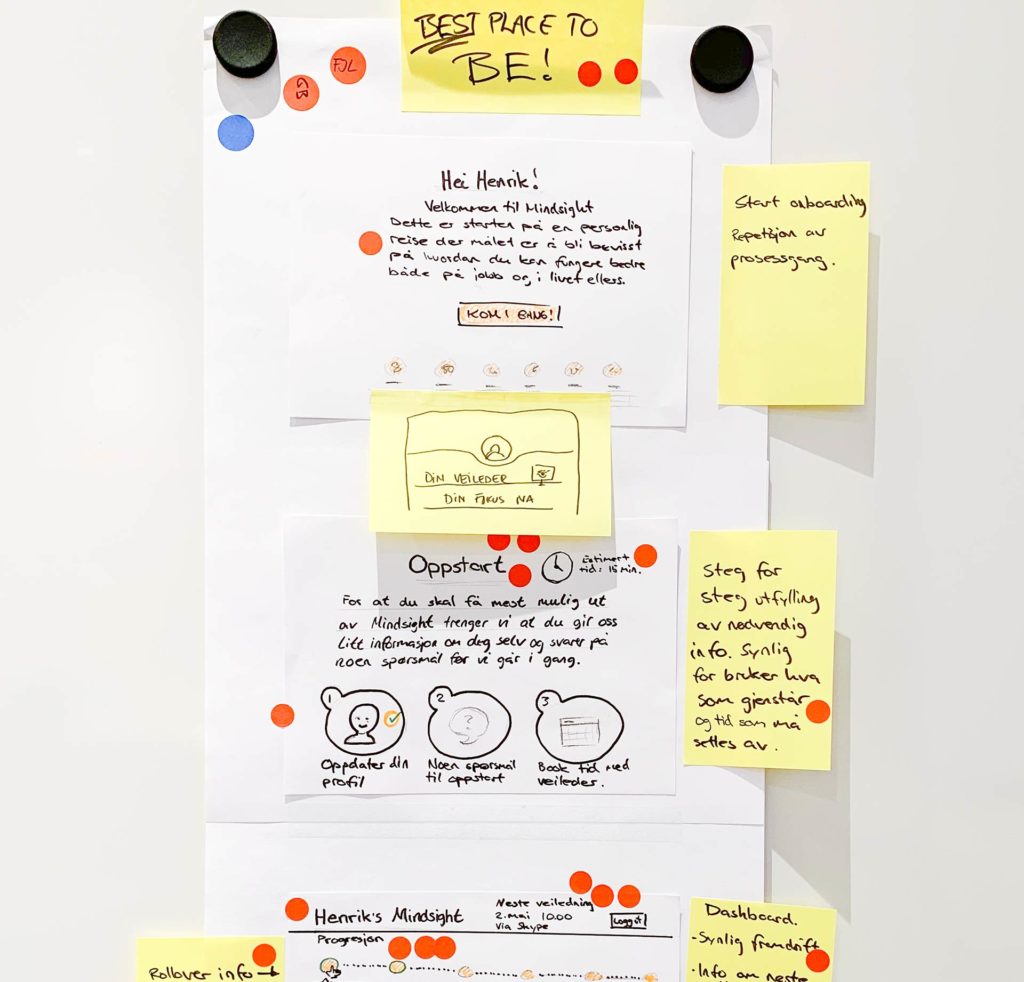 BEST PLACE TO
BE!
FJL
GB
Hei Henrik!
Velkommen til Mindsight
Dette er starten på en personlig
reise der målet er å bli bevisst
på hvordan du kan fungere bedre
både på jobb og i livet ellers.
KOM I GANG!
Start onboarding
Repetisjon av
prosessgang.
DIN VEILEDER
DIN FOKUS NA
Oppstart
Estimert
tid: 15 min.
For at du skal få mest mulig ut
av Mindsight trenger vi at du gir oss
litt informasjon om deg selv og svarer på
noen spørsmål før vi går i gang.
1
2
?
3
Oppdater din
profil
Noen spørsmål
til oppstart
Book tid med
veileder.
Steg for
steg utfylling
av nødvendig
info. Synlig
for bruker hva
som gjenstår
og tid som må
settes av.
Henrik's Mindsight
Neste veiledning
2. mai 10.00
via Skype
Logg ut
Progresjon
Rollover info →
Dashboard.
- Synlig fremdrift
- Info om neste